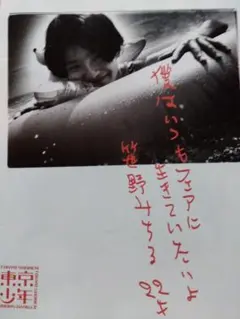 僕はいつもフェアに
生きていたいよ
笹野みちる 22才
東京
少年